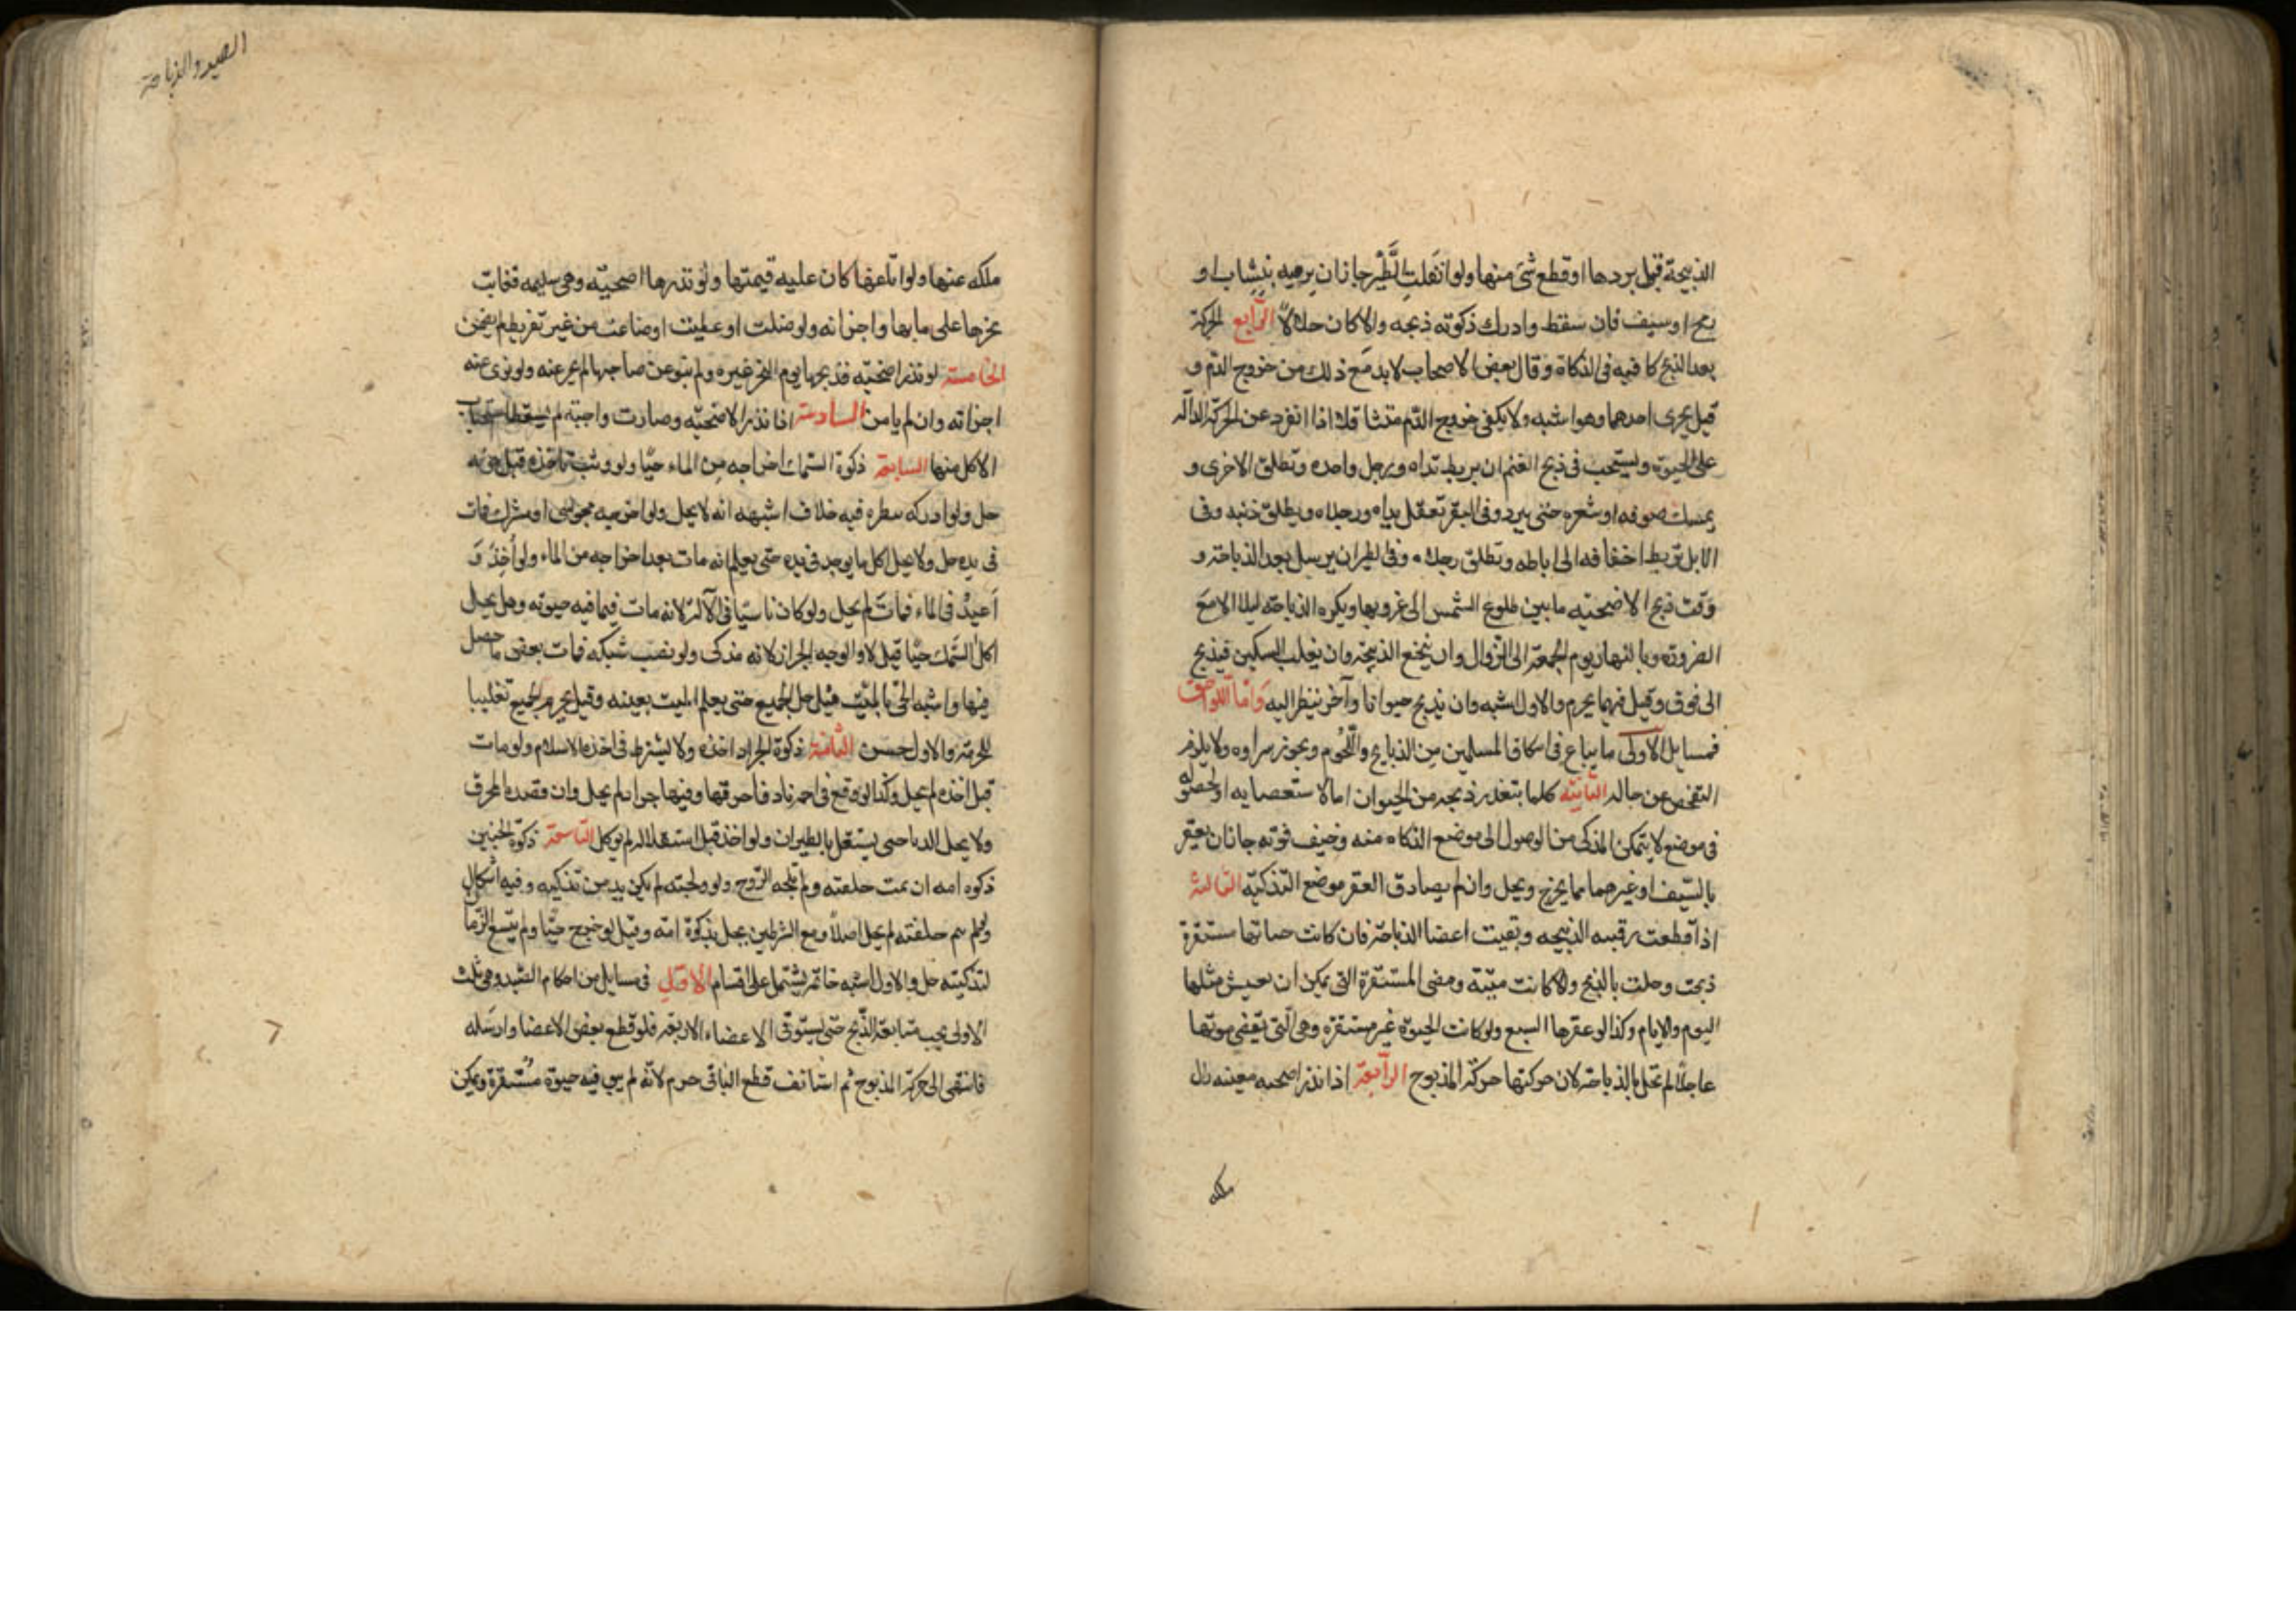 الذبيحة قبل بردها او قطع شئ منها ولو انفلت الطير جاز ان يرميه بنشاب او
رمح او سيف فان سقط وادرك ذكوته ذبحه والا كان حلالا الرابع الحركة
بعد الذبح كافيه فى الذكاة وقال بعض الاصحاب لا بد مع ذلك من خروج الدم و
قيل يجزى احدهما وهو اشبه ولا يكفى خروج الدم متثاقلا اذا انفرد عن الحركة الدالة
على الحيوة ويستحب فى ذبح الغنم ان يربط يداه ورجل واحده وتطلق الاخرى و
يمسك صوفه او شعره حتى يبرد وفى البقر تعقل يداه ورجلاه ويطلق ذنبه وفى
الابل تربط اخفافه الى اباطه وتطلق رجلاه وفى الطير ان يرسل بعد الذباحة و
وقت ذبح الاضحيه ما بين طلوع الشمس الى غروبها ويكره الذباحة ليلا الا مع
الضرورة وبالنهار يوم الجمعة الى الزوال وان ينخع الذبيحة وان يقلب السكين فيذبح
الى فوق وقيل فيهما يحرم والاول اشبه وان يذبح حيوانا وآخر ينظر اليه واما اللواحق
فمسايل الاولى ما يباع فى اسكاق المسلمين من الذبايح واللحوم ويجوز سراوه ولا يلزم
التفحص عن حاله الثانية كلما يتعذر ذبحه من الحيوان اما لاستعصايه او لحصوله
فى موضع لا يتمكن المذكى من الوصول الى موضع الذكاه منه وخيف فوته جاز ان يعقر
بالسيف او غيرهما مما يجرح ويحل وان لم يصادق العقر موضع التذكية الثالثة
اذا قطعت رقبه الذبيحه وبقيت اعضا الذباحة فان كانت حياتها مستقرة
ذبحت وحلت بالذبح والا كانت ميتة ومعنى المستقرة التى يمكن ان يعيش مثلها
اليوم والايام وكذا لو عقرها السبع ولو كانت الحيوة غير مستقرة وهى التى يقضى بموتها
عاجلا لم تحل بالذباحة لان حركتها حركة المذبوح الرابعة اذا نذر اضحيه معينه زال
ملكه
الصيد والذباحة
ملكه عنها ولو اتلفها كان عليه قيمتها ولو نذرها اضحية وهى سليمه فعابت
نحرها على ما بها واجزاته ولو ضلت او عطبت او ضاعت من غير تفريط لم يضمن
الخامسة لو نذر اضحية فذبحها يوم النحر غيره ولم ينو عن صاحبها لم يجز عنه ولو نوى عنه
اجزاته وان لم يامر السادسة اذا نذر الاضحية وصارت واجبة لم يسقط استحباب
الاكل منها السابعة ذكوة السمك اخراجه من الماء حيا ولو وثب فاخذه قبل موته
حل ولو ادركه بنظره فيه خلاف اشبهه انه لا يحل ولو اخرجه مجوسى او مشرك فمات
فى يده حل ولا يحل اكل ما يوجد فى يده حتى يعلم انه مات بعد اخراجه من الماء ولو أخذ و
أعيد فى الماء فمات لم يحل ولو كان ناسيا فى الآلة لانه مات فيما فيه حيوته وهل يحل
اكل السمك حيا قيل لا والوجه الجواز لانه مذكى ولو نصب شبكه فمات بعض ما حصل
فيها واشبه الحى بالميت قيل حل الجميع حتى يعلم الميت بعينه وقيل يحرم الجميع تغليبا
للحرمة والاول حسن الثامنة ذكوة الجراد اخذه ولا يشترط فى اخذه الاسلام ولو مات
قبل اخذه لم يحل وكذا لو وقع فى اجمة نار فاحرقها وفيها جراد لم يحل وان قصده المحرق
ولا يحل الدبا حتى يستقل بالطيران ولو اخذ قبل استقلاله لم يوكل التاسعة ذكوة الجنين
ذكوة امه ان تمت خلقته ولم تلجه الروح ولو ولجته لم يكن بد من تذكيته وفيه اشكال
ولو لم يتم خلقته لم يحل اصلا ومع الشرطين يحل بذكوة امه وقيل لو خرج حيا ولم يتسع الزمان
لتذكيته حل والاول اشبه خاتمة يشتمل على اقسام الاول فى مسايل من احكام الصيد وهى ثلث
الاولى يجب متابعة الذبح حتى يستوفى الاعضاء الاربعة فلو قطع بعض الاعضا وارسله
فانتهى الى حركة المذبوح ثم استانف قطع الباقى حرم لانه لم يبق فيه حيوة مستقرة ويمكن